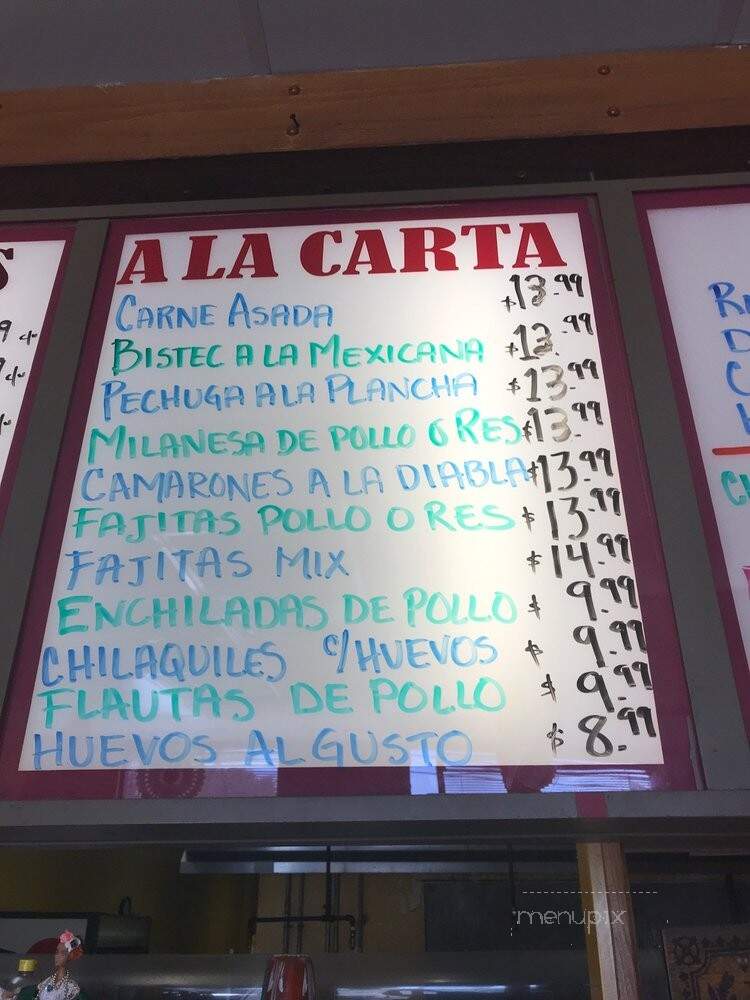 A LA CARTA
CARNE ASADA $13.99
BISTEC A LA MEXICANA $13.99
PECHUGA A LA PLANCHA $13.99
MILANESA DE POLLO O RES $13.99
CAMARONES A LA DIABLA $13.99
FAJITAS POLLO O RES $13.99
FAJITAS MIX $14.99
ENCHILADAS DE POLLO $9.99
CHILAQUILES C/HUEVOS $9.99
FLAUTAS DE POLLO $9.99
HUEVOS AL GUSTO $8.99
menupix